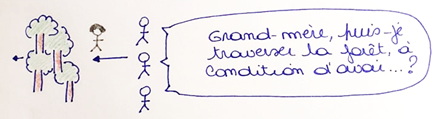 Grand-mère, puis-je
traverser la forêt, à
condition d'avoi...?